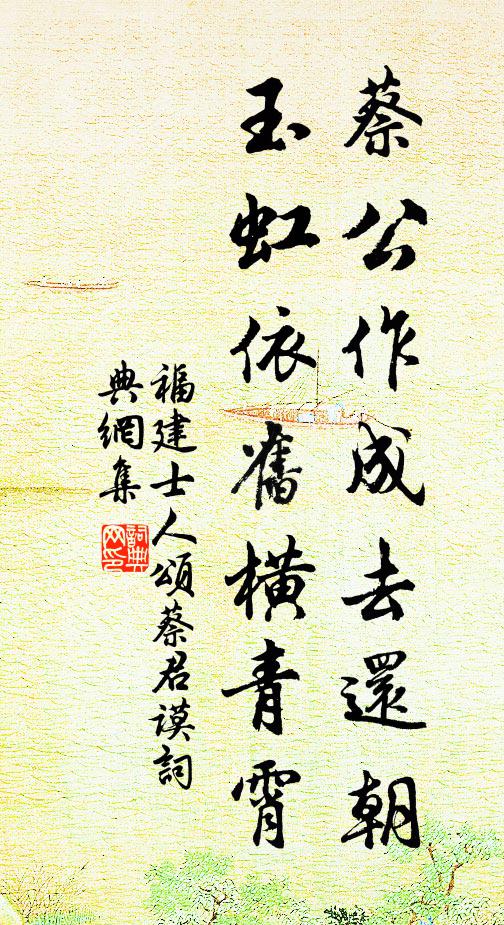 蔡公作成去還朝
玉虹依舊橫青霄
福建士人頌蔡君謨詞
典網集
詞典
网印